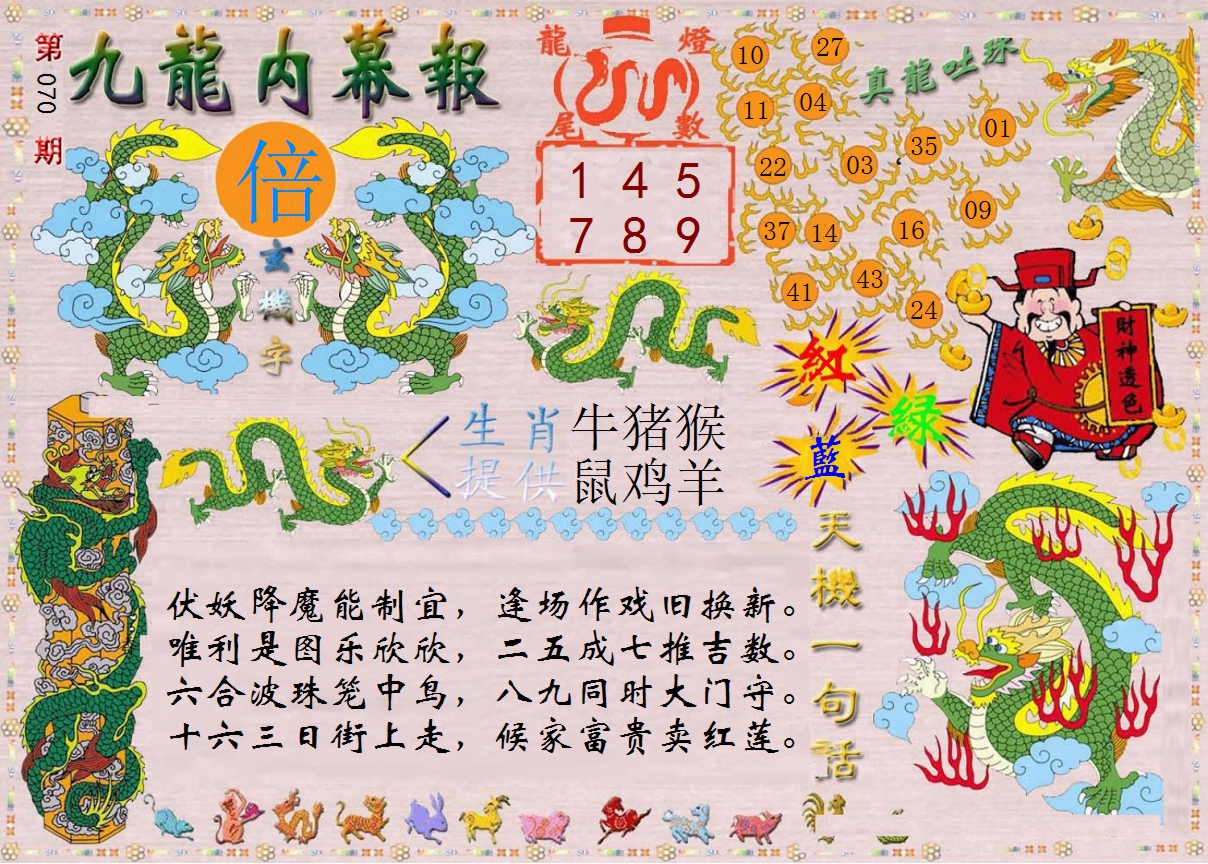 第070期
九龍内幕報
倍
玄機字
龍燈
尾數
1 4 5
7 8 9
真龍吐珠
10 27
11 04
22 03 35 01
37 14 16 09
41 43 24
財神透色
紅
綠
藍
生肖 牛猪猴
提供 鼠鸡羊
天機一句話
伏妖降魔能制宜，逢场作戏旧换新。
唯利是图乐欣欣，二五成七推吉数。
六合波珠笼中鸟，八九同时大门守。
十六三日街上走，候家富贵卖红莲。